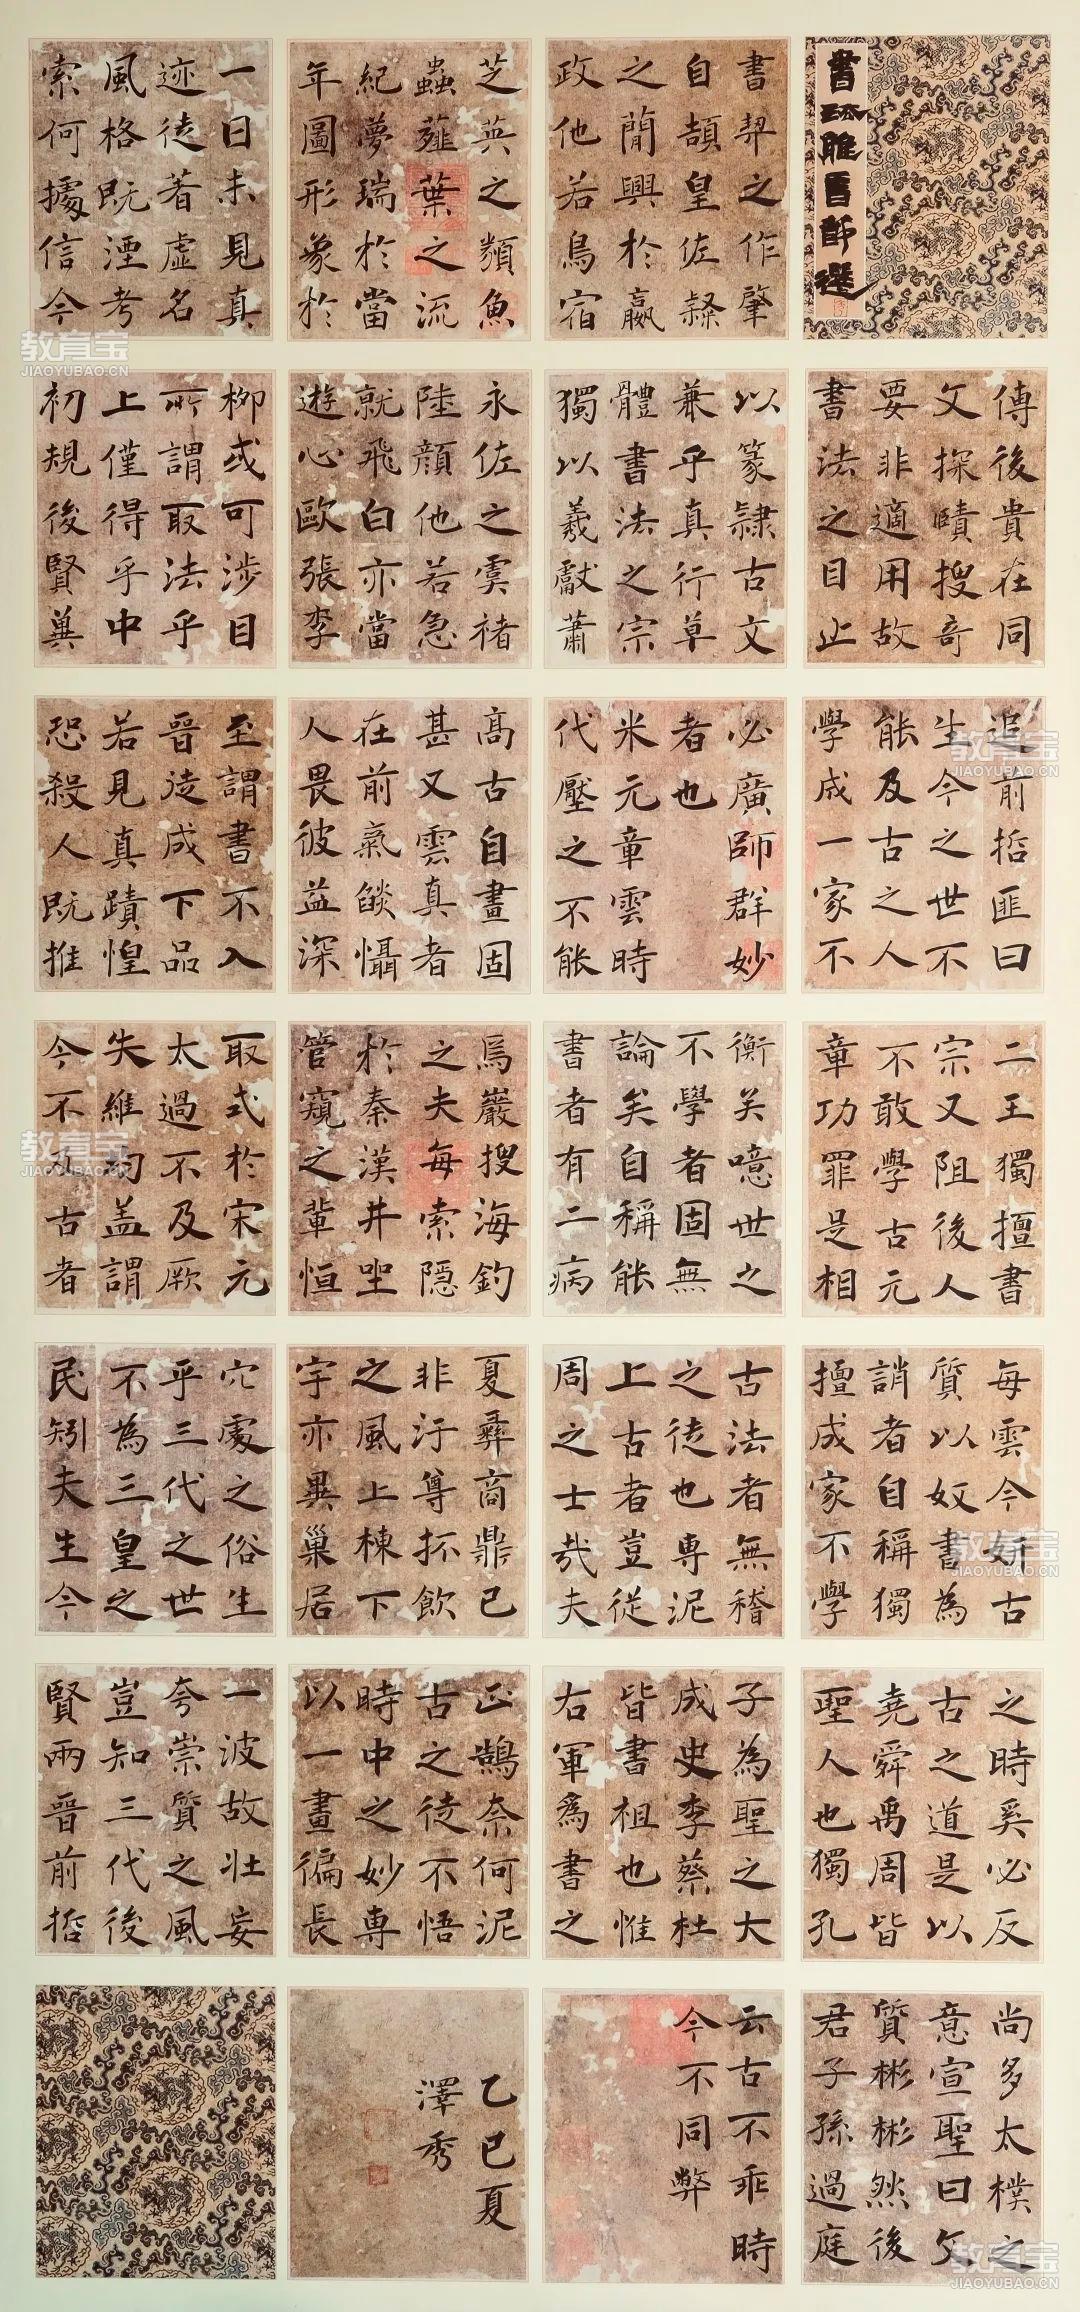 書法雅言節選
書契之作肇
自頡皇佐隸
之簡興於嬴
政他若鳥宿
芝英之類魚
蟲薤葉之流
紀夢瑞於當
年圖形象於
一日未見真
迹徒著虛名
風格既湮考
索何據信今
傳後貴在同
文探賾搜奇
要非適用故
書法之目止
以篆隸古文
兼乎真行草
體書法之宗
獨以羲獻蕭
永佐之虞褚
陸顏他若急
就飛白亦當
遊心歐張李
柳或可涉目
所謂取法乎
上僅得乎中
初規後賢冀
追前哲匪曰
生今之世不
能及古之人
學成一家不
必廣師群妙
者也
米元章雲時
代壓之不能
高古自畫固
甚又雲真者
在前氣燄懾
人畏彼益深
至謂書不入
晉徒成下品
若見真蹟惶
恐殺人既推
二王獨擅書
宗又阻後人
不敢學古元
章功罪是相
衡矣噫世之
不學者固無
論矣自稱能
書者有二病
焉巖搜海釣
之夫每索隱
於秦漢井坐
管窺之輩恒
取式於宋元
太過不及厥
失維均蓋謂
今不及古者
每雲今妍古
質以奴書為
誚者自稱獨
擅成家不學
古法者無稽
之徒也專泥
上古者豈從
周之士哉夫
夏彝商鼎已
非汙尊抔飲
之風上棟下
宇亦異巢居
穴處之俗生
乎三代之世
不為三皇之
民矧夫生今
之時奚必反
古之道是以
堯舜禹周皆
聖人也獨孔
子為聖之大
成史李蔡杜
皆書祖也惟
右軍為書之
正鵠奈何泥
古之徒不悟
時中之妙專
以一畫徧長
一波故壯妄
夸崇質之風
豈知三代後
賢兩晉前哲
尚多太樸之
意宣聖曰文
質彬彬然後
君子孫過庭
云古不乖時
今不同弊
乙巳夏
澤秀
教育宝
JIAOYUBAO.CN
教育宝
JIAOYUBAO.CN
教育宝
JIAOYUBAO.CN
教育宝
JIAOYUBAO.CN
教育宝
JIAOYUBAO.CN